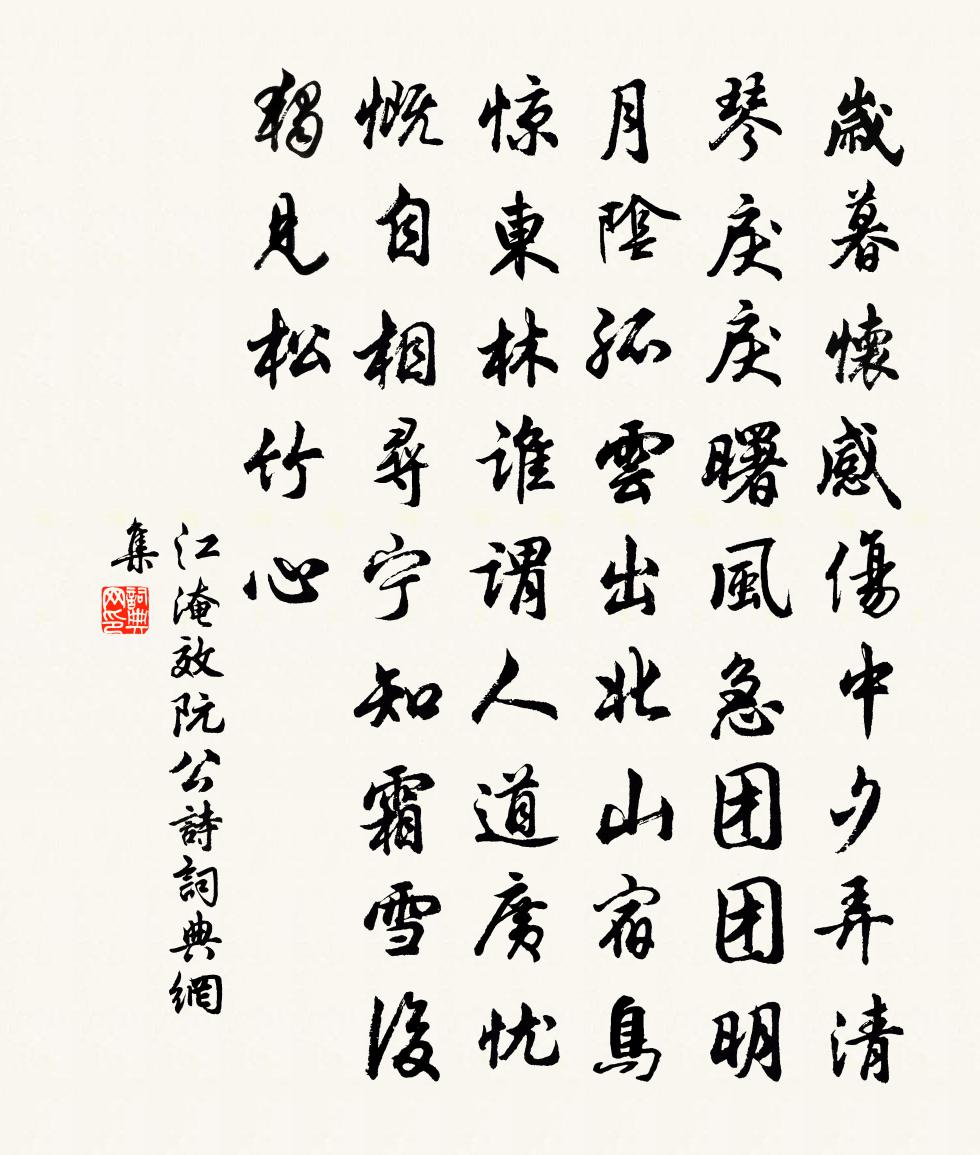 歲暮懷感傷中夕弄清
琴戾戾曙風急团团明
月陰孤雲出北山宿鳥
惊東林谁謂人道廣忧
慨自相尋宁知霜雪後
獨見松竹心
江淹效阮公詩詞典網
集
詞典网印